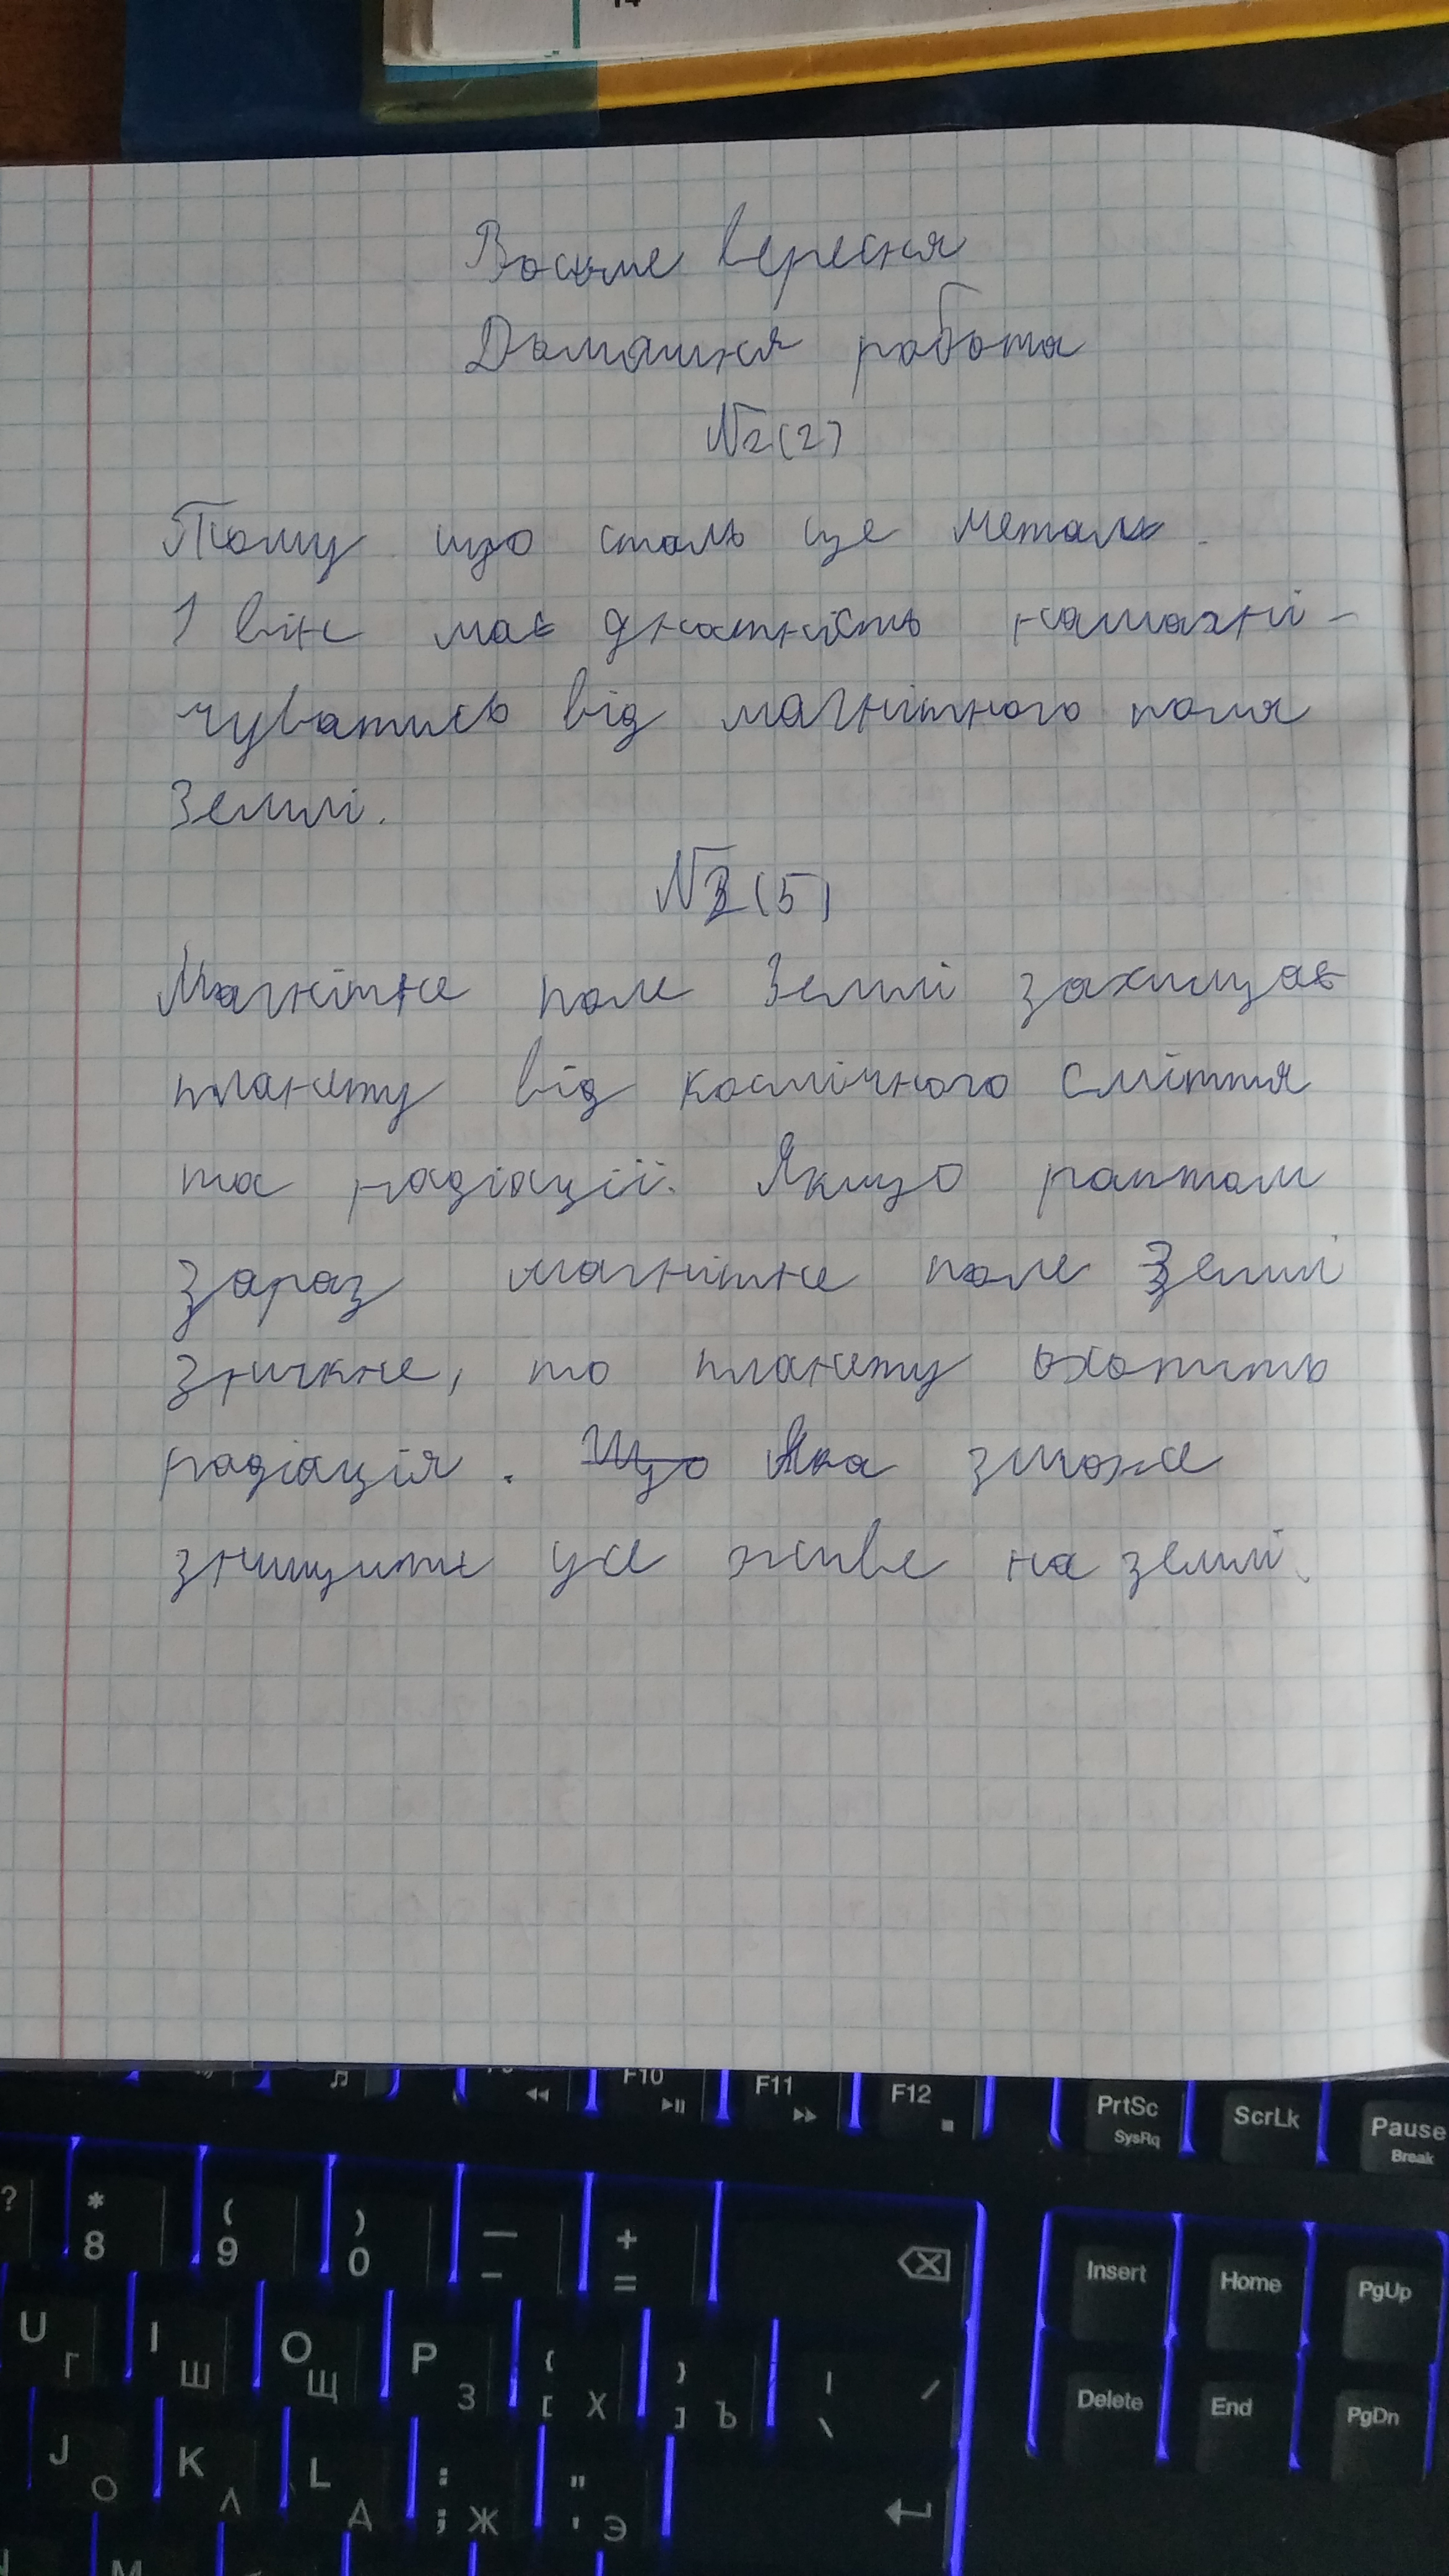 14
Восьме вересня
Домашня робота
№2(2)
Тому що сталь це метал.
І він має здатність намагні-
чуватись від магнітного поля
Землі.
№2(5)
Магнітне поле Землі захищає
планету від космічного сміття
та радіації. Якщо раптом
зараз магнітне поле Землі
зникне, то планету охопить
радіація. Що Яка зможе
знищити усе живе на землі.
F10 F11 F12 PrtSc SysRq ScrLk Pause Break
? * 8 ( 9 ) 0 — - + = Insert Home PgUp
U Г I Ш O Щ P З { [ Х } ] Ъ | \ / Delete End PgDn
J О K Л L Д : ; Ж " ' Э
M